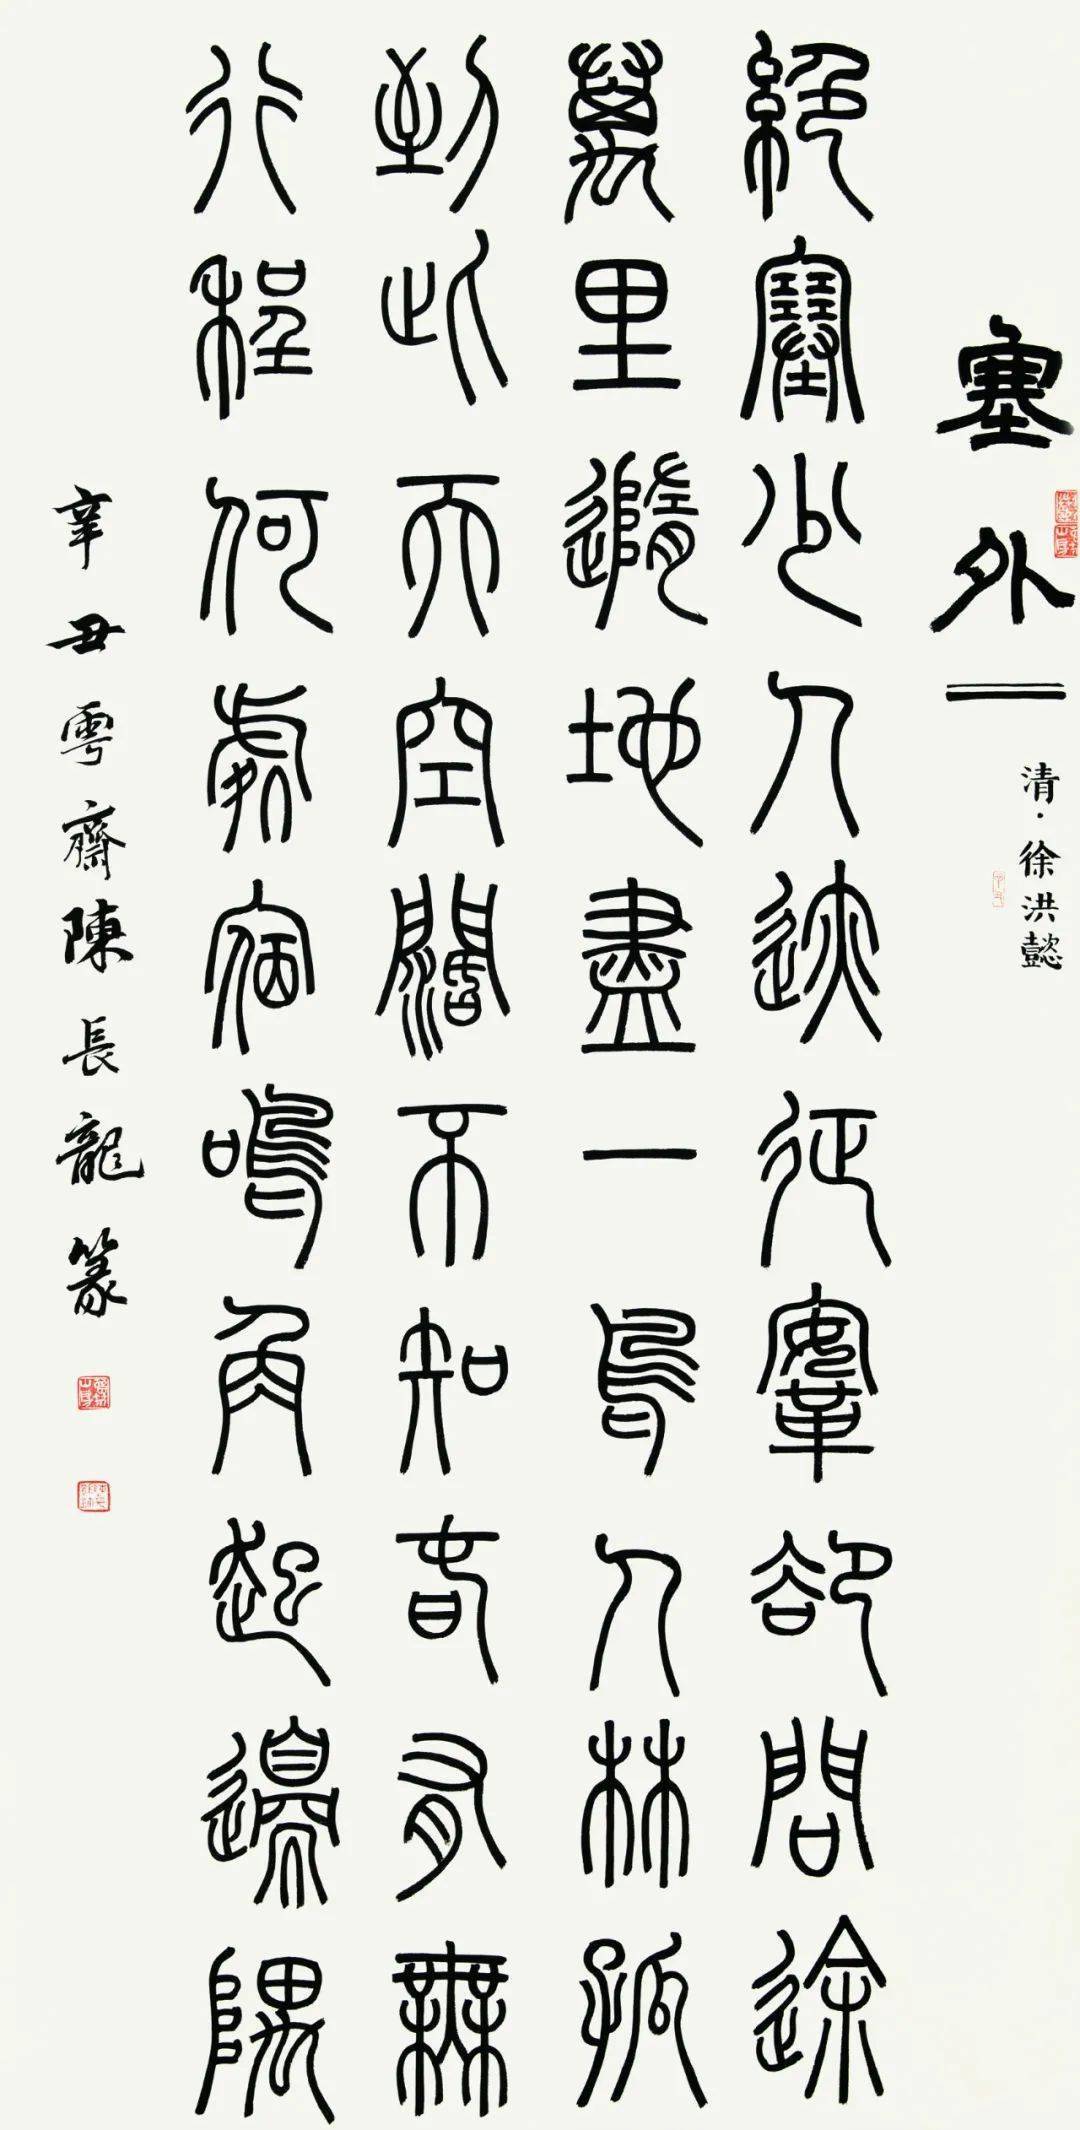 塞外 清·徐洪懿
絕塞少人迹征鞌卻問途
萬里隨地盡一鳥入林孤
到此天空闊不知吾有無
行程何處宿鳴角起邊隅
辛丑雩齋陳長龍篆